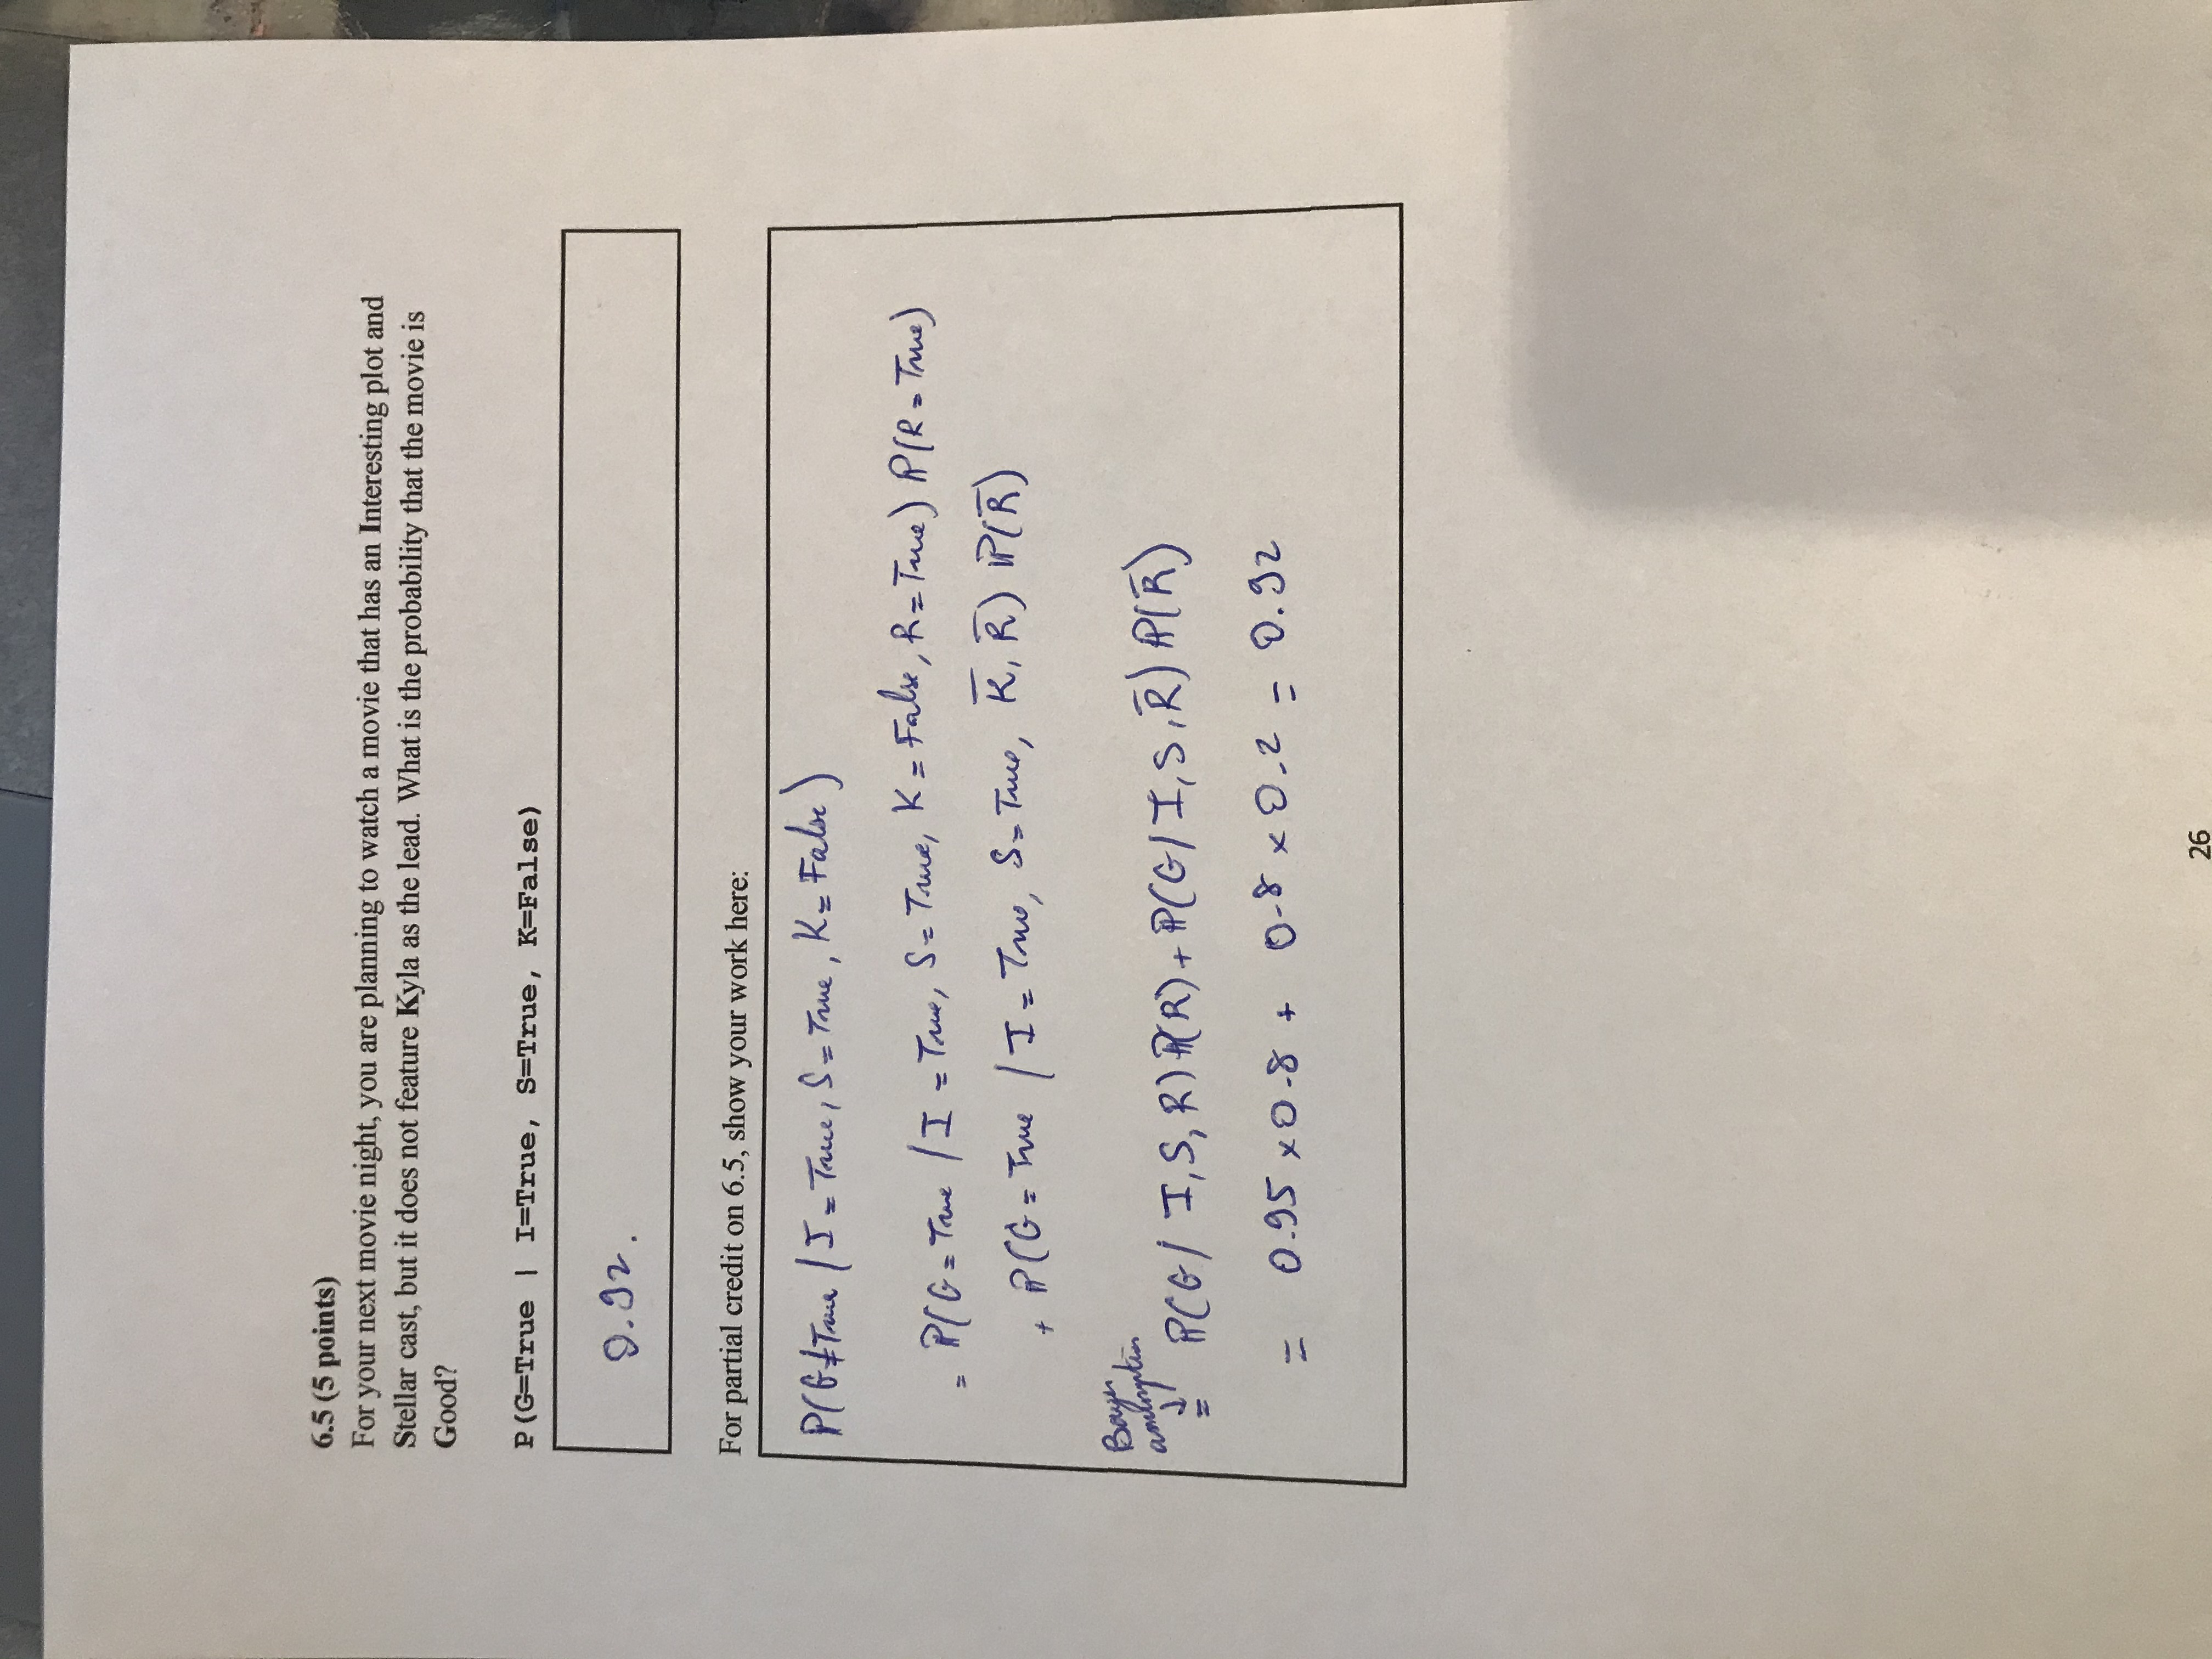 6.5 (5 points)
For your next movie night, you are planning to watch a movie that has an Interesting plot and
Stellar cast, but it does not feature Kyla as the lead. What is the probability that the movie is
Good?
P(G=True | I=True, S=True, K=False)
0.92.
For partial credit on 6.5, show your work here:
P(G=True / I = True, S = True, K = False)
= P(G = True / I = True, S = True, K = False, R = True) P(R = True)
+ P(G = True / I = True, S = True, K̅, R̅) P(R̅)
Bayes
assumption
↓
= P(G / I, S, R) P(R) + P(G / I, S, R̅) P(R̅)
= 0.95 x 0.8 + 0.8 x 0.2 = 0.92
26